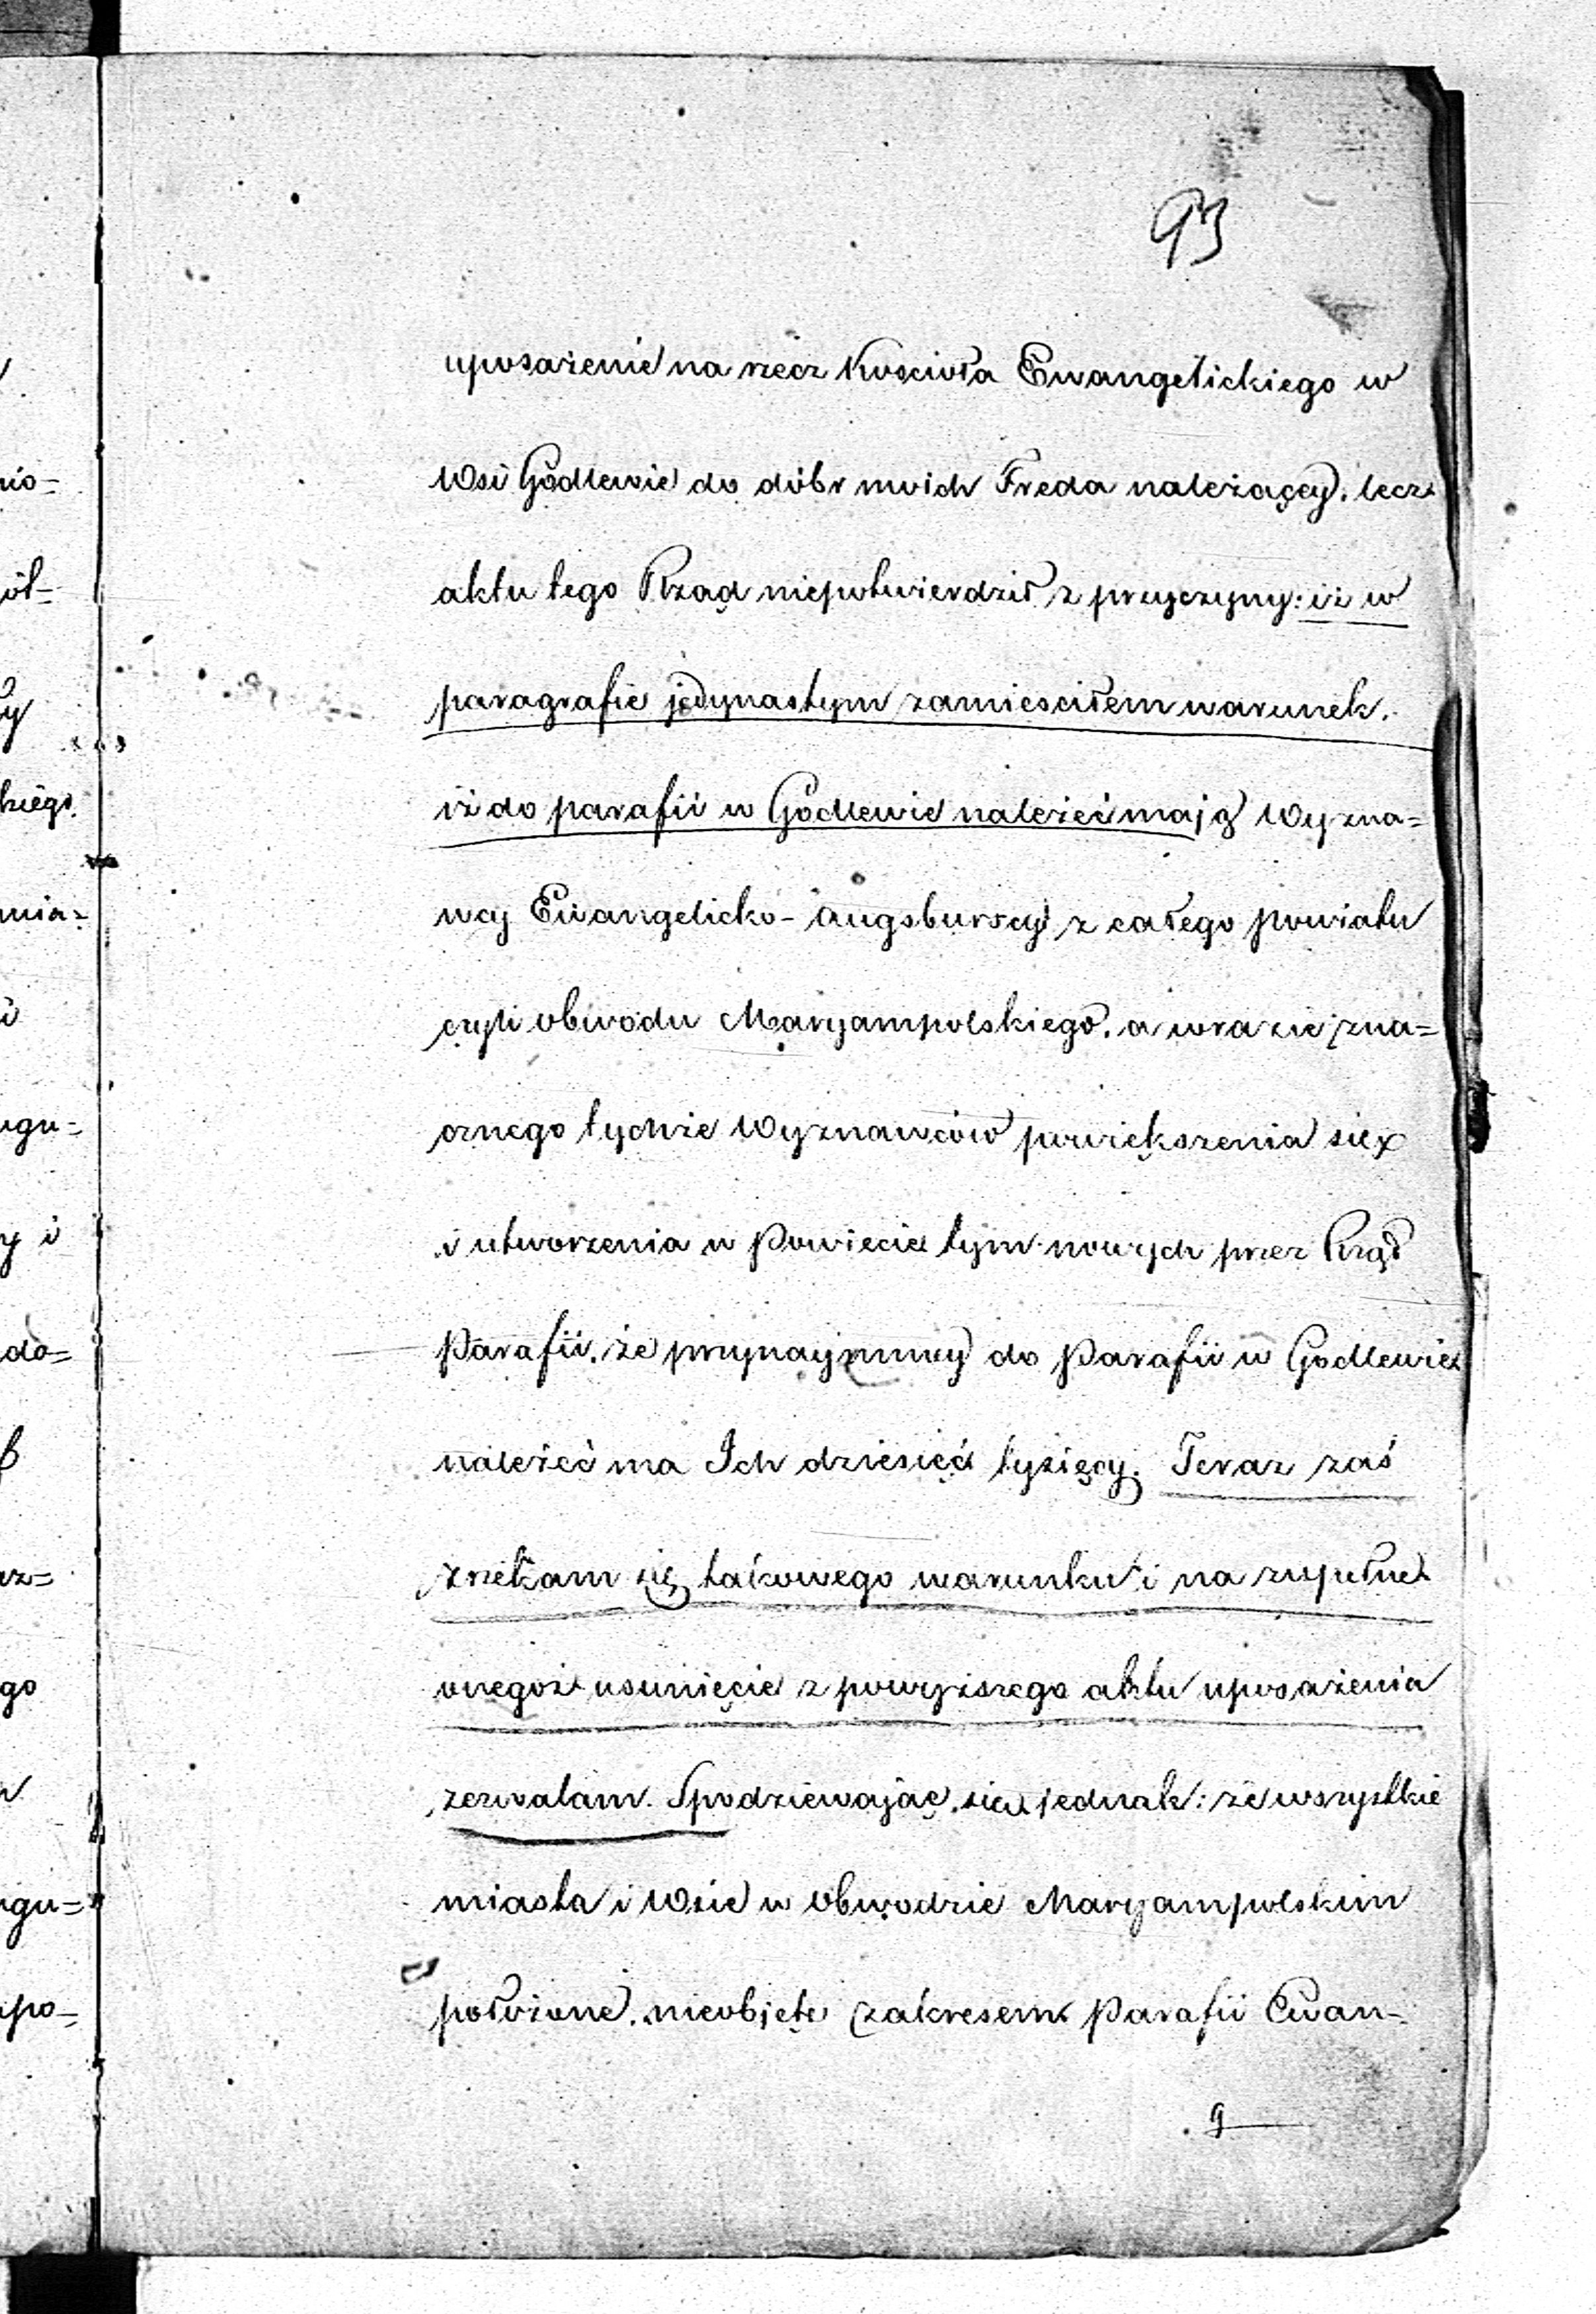 93
uposażenie na rzecz Kościoła Ewangelickiego w
Wsi Godlewie do dóbr moich Freda należącey, lecz
aktu tego Rząd niepotwierdził z przyczyny: iż w
paragrafie jedynastym zamieściłem warunek,
iż do parafii w Godlewie należeć mają Wyzna=
wcy Ewangelicko-Augsburscy z całego powiatu
czyli obwodu Maryampolskiego, a wrazie zna=
cznego tychże Wyznawców powiększenia się
i utworzenia w Powiecie tym nowych przez Rząd
Parafii, że przynaymniey do Parafii w Godlewie
należeć ma Ich dziesięć tysięcy. Teraz zaś
zrzekam się takowego warunku i na zupełne
onegoż usunięcie z powyższego aktu uposażenia
zezwalam. Spodziewając się jednak: że wszystkie
miasta i Wsie w Obwodzie Maryampolskim
położone, nieobjęte zakresem Parafii Ewan-
g
nio=
ół=
kiego.
mia=
ugu=
y i
do=
az=
go
ugu=
po=